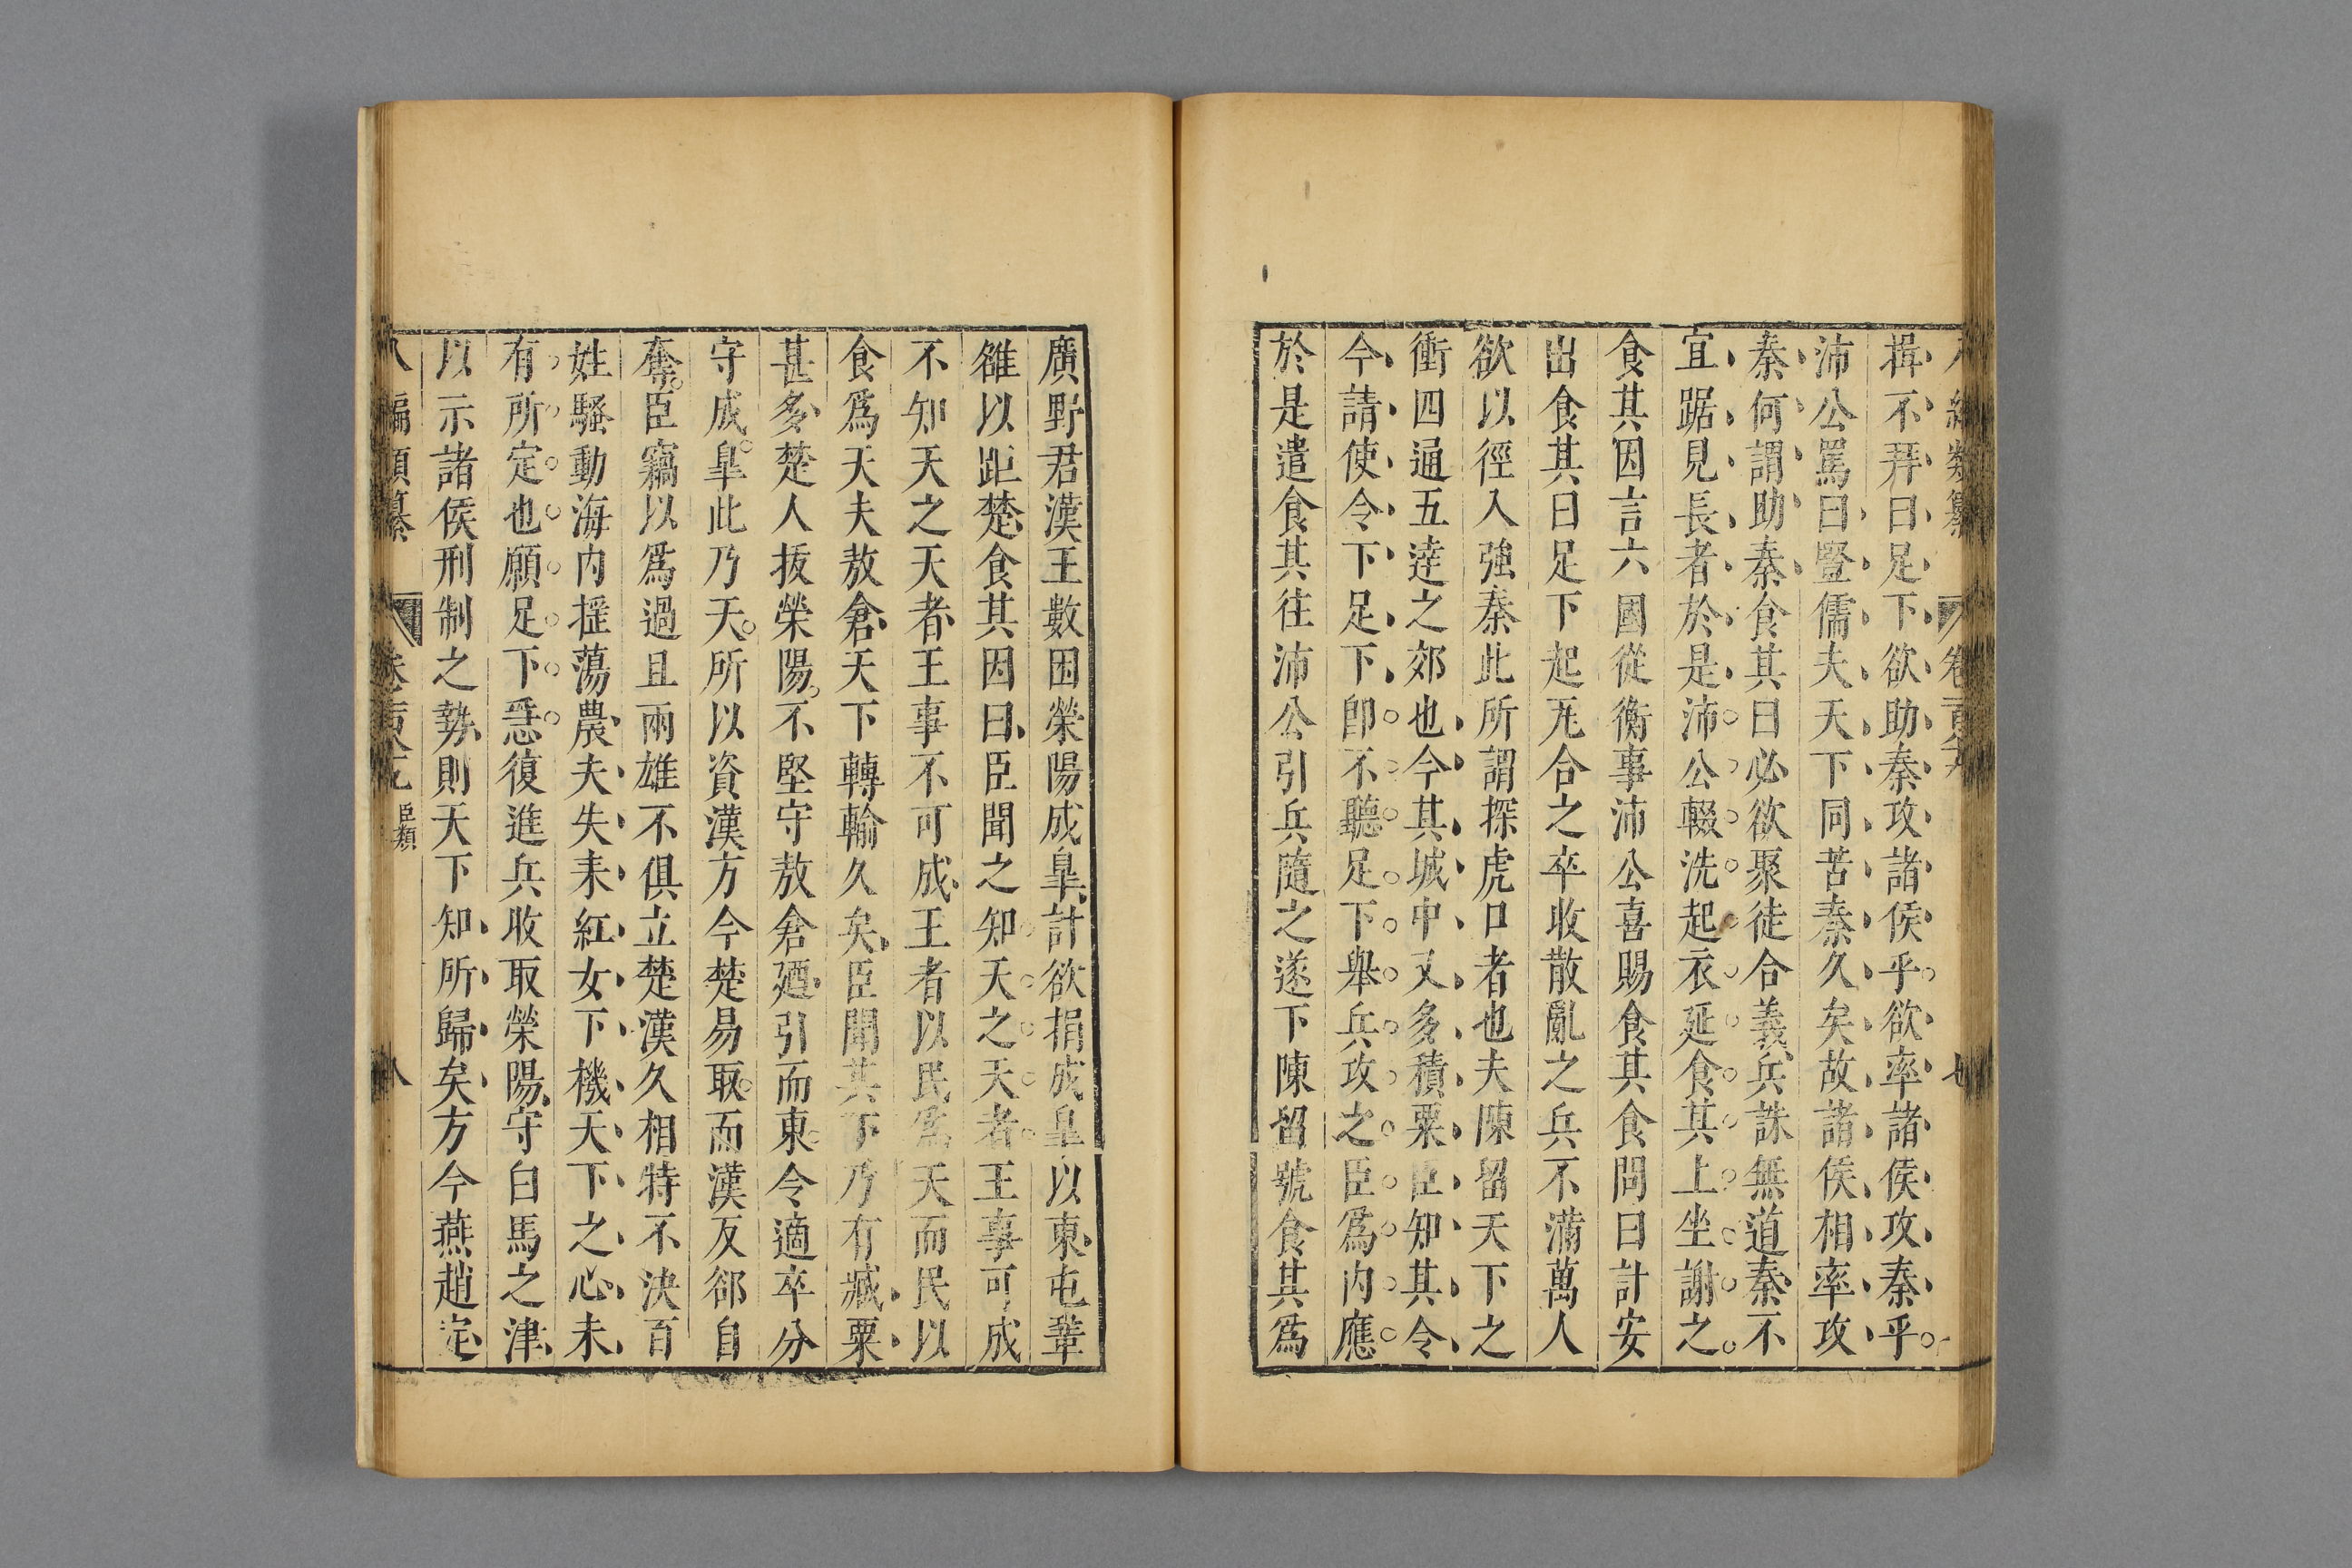 揖不拜曰足下欲助秦攻諸侯乎欲率諸侯攻秦乎
沛公罵曰豎儒夫天下同苦秦久矣故諸侯相率攻
秦何謂助秦食其曰必欲聚徒合義兵誅無道秦不
宜踞見長者於是沛公輟洗起衣延食其上坐謝之
食其因言六國從衡事沛公喜賜食其食問曰計安
出食其曰足下起兀合之卒收散亂之兵不滿萬人
欲以徑入強秦此所謂探虎口者也夫陳留天下之
衝四通五達之郊也今其城中又多積粟臣知其令
今請使令下足下卽不聽足下舉兵攻之臣爲内應
於是遣食其往沛公引兵隨之遂下陳留號食其爲
廣野君漢王數困滎陽成臯計欲捐成臯以東屯鞏
雒以距楚食其因曰臣聞之知天之天者王事可成
不知天之天者王事不可成王者以民爲天而民以
食爲天夫敖倉天下轉輸久矣臣聞其下乃有臧粟
甚多楚人拔滎陽不堅守敖倉廼引而東令適卒分
守成臯此乃天所以資漢方今楚易取而漢反郤自
奪臣竊以爲過且兩雄不俱立楚漢久相持不決百
姓騷動海内搖蕩農夫失耒紅女下機天下之心未
有所定也願足下亟復進兵收取滎陽守白馬之津
以示諸侯刑制之埶則天下知所歸矣方今燕趙定
八編類纂 卷 臣類 八